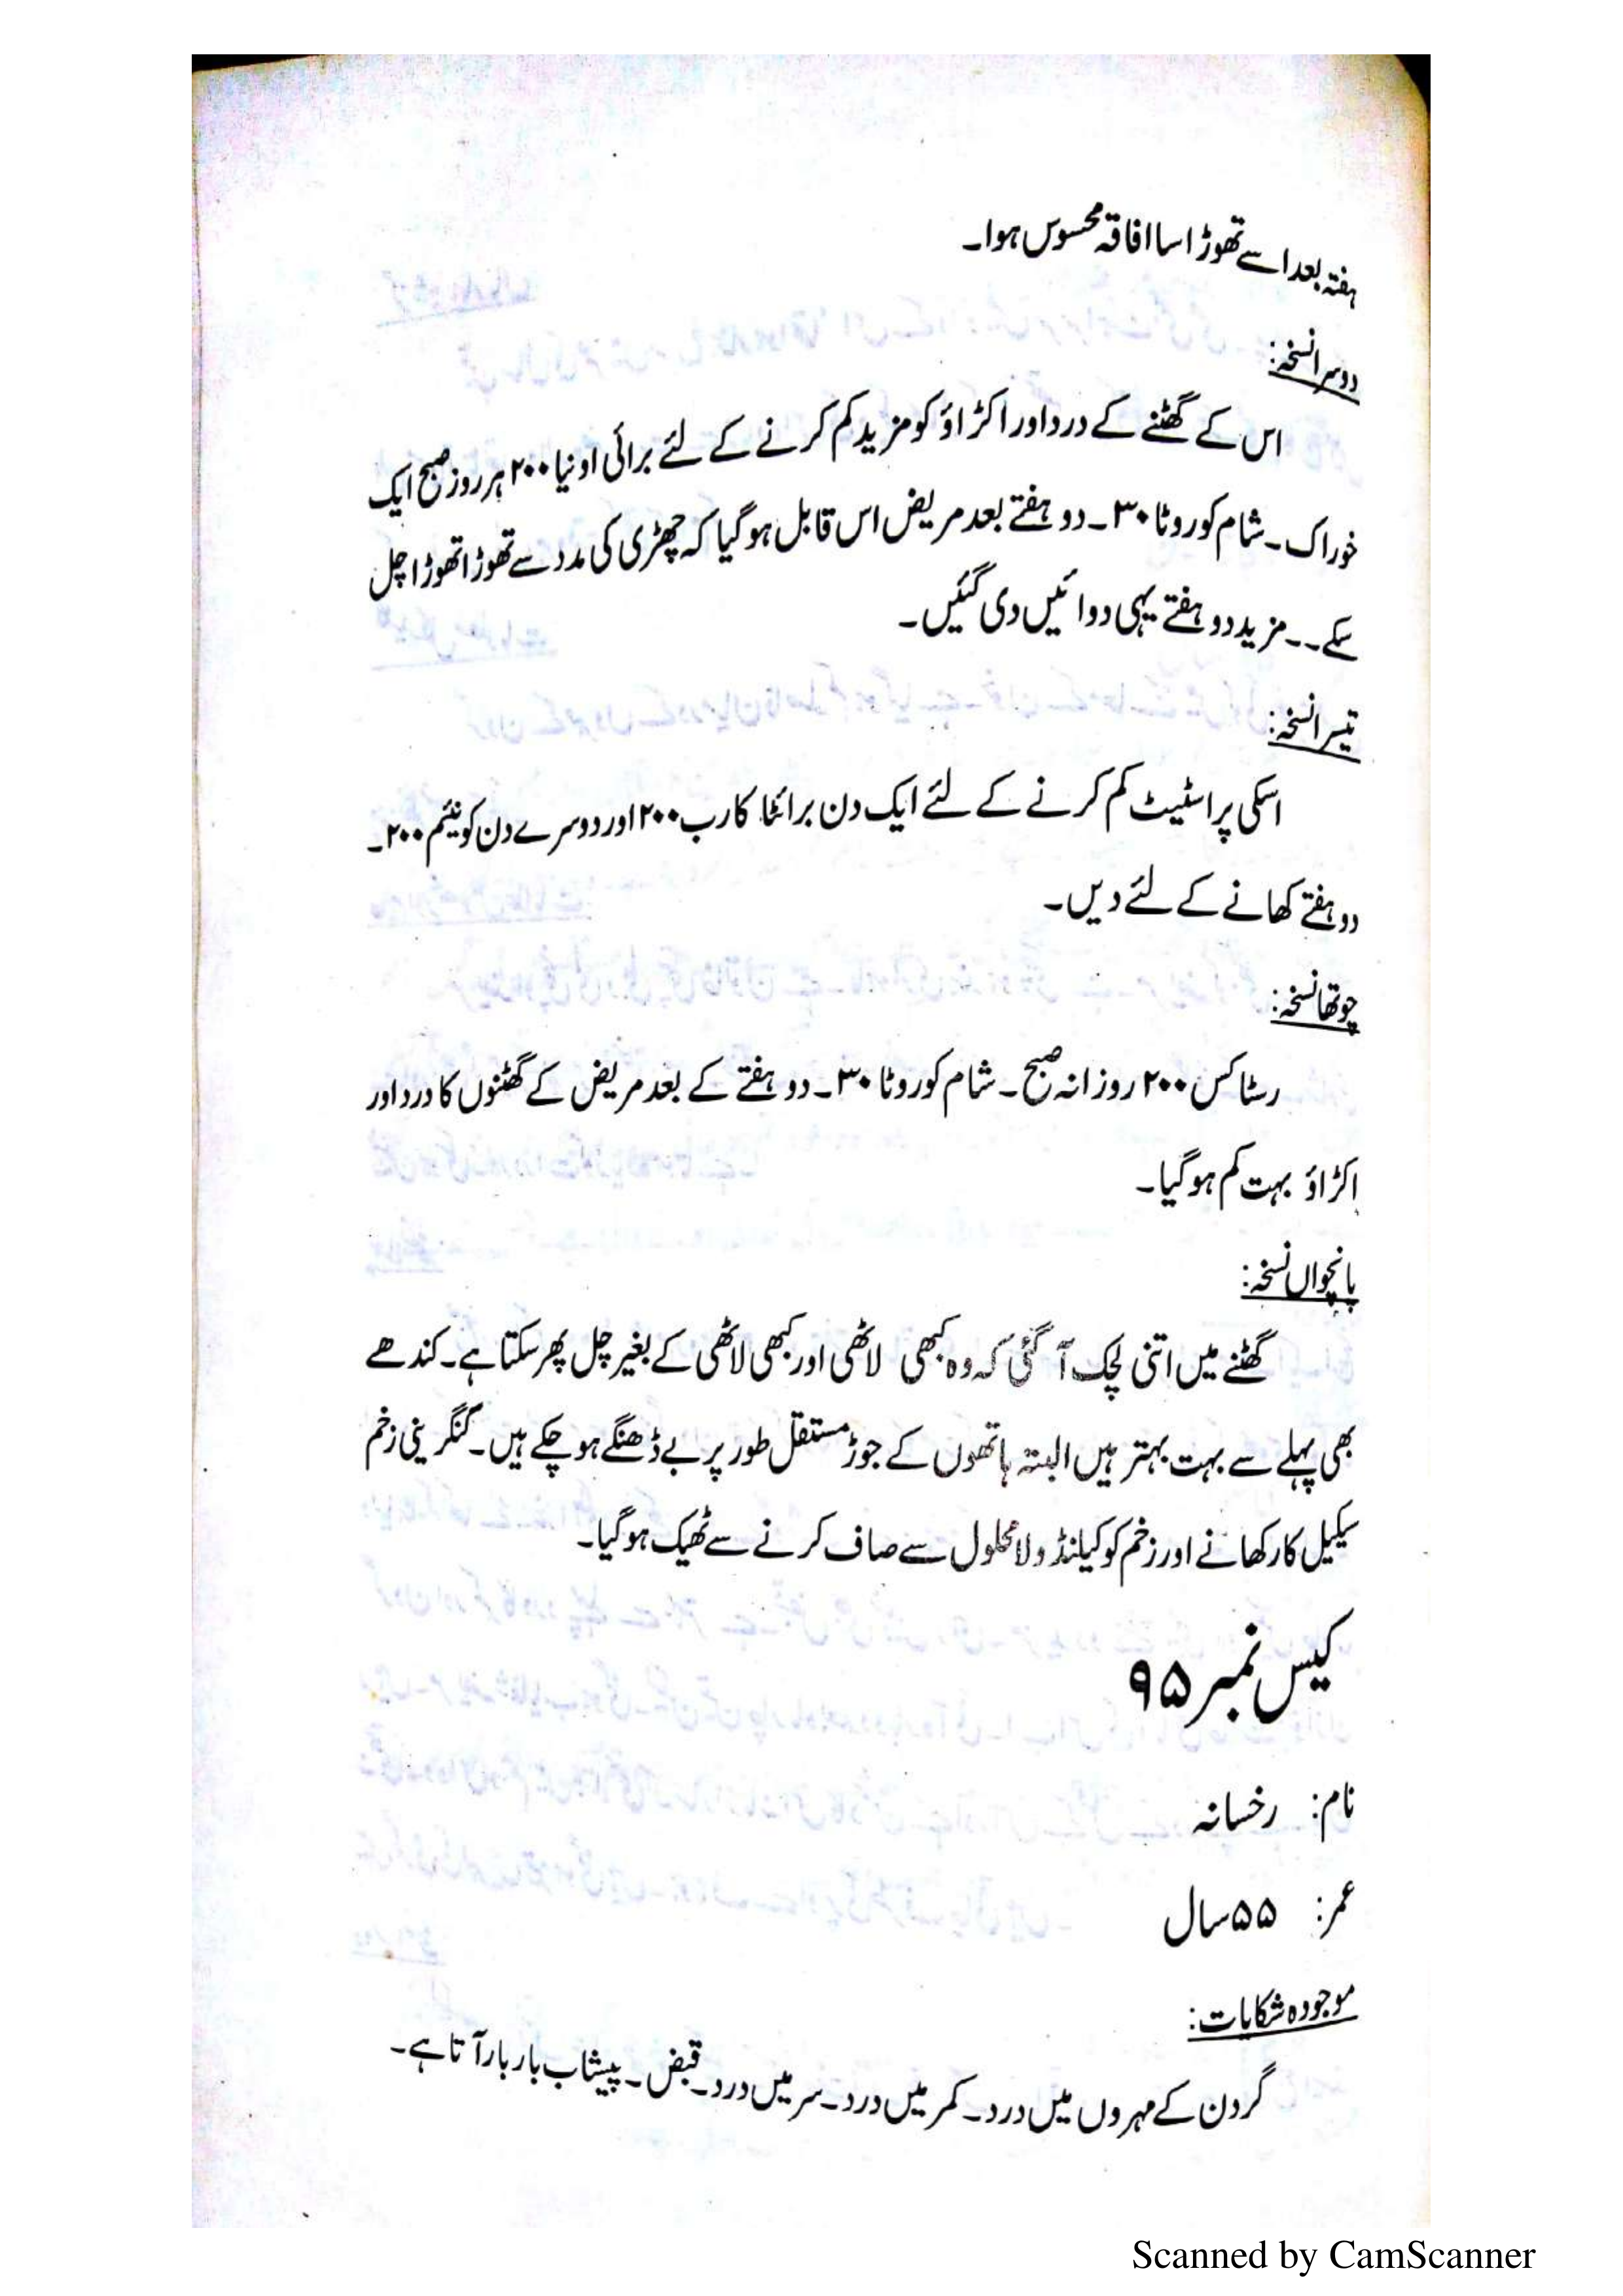 ہفتہ بعد اسے تھوڑا سا افاقہ محسوس ہوا۔
دوسرا نسخہ:
اس کے گھٹنے کے درد اور اکڑاؤ کو مزید کم کرنے کے لئے برائی اونیا ۲۰۰ ہر روز صبح ایک
خوراک۔ شام کو روٹا ۳۰۔ دو ہفتے بعد مریض اس قابل ہو گیا کہ چھڑی کی مدد سے تھوڑا تھوڑا چل
سکے۔۔ مزید دو ہفتے یہی دوائیں دی گئیں۔
تیسرا نسخہ:
اسکی پراسٹیٹ کم کرنے کے لئے ایک دن برائٹا کارب ۲۰۰ اور دوسرے دن کونیئم ۲۰۰۔
دو ہفتے کھانے کے لئے دیں۔
چوتھا نسخہ:
رسٹاکس ۲۰۰ روزانہ صبح۔ شام کو روٹا ۳۰۔ دو ہفتے کے بعد مریض کے گھٹنوں کا درد اور
اکڑاؤ بہت کم ہو گیا۔
پانچواں نسخہ:
گھٹنے میں اتنی لچک آ گئی کہ وہ کبھی لاٹھی اور کبھی لاٹھی کے بغیر چل پھر سکتا ہے۔ کندھے
بھی پہلے سے بہت بہتر ہیں البتہ ہاتھوں کے جوڑ مستقل طور پر بے ڈھنگے ہو چکے ہیں۔ گنگرینی زخم
سیکیل کار کھانے اور زخم کو کیلنڈولا محلول سے صاف کرنے سے ٹھیک ہو گیا۔
کیس نمبر ۹۵
نام: رخسانہ
عمر: ۵۵ سال
موجودہ شکایات:
گردن کے مہروں میں درد۔ کمر میں درد۔ سر میں درد۔ قبض۔ پیشاب بار بار آتا ہے۔
Scanned by CamScanner